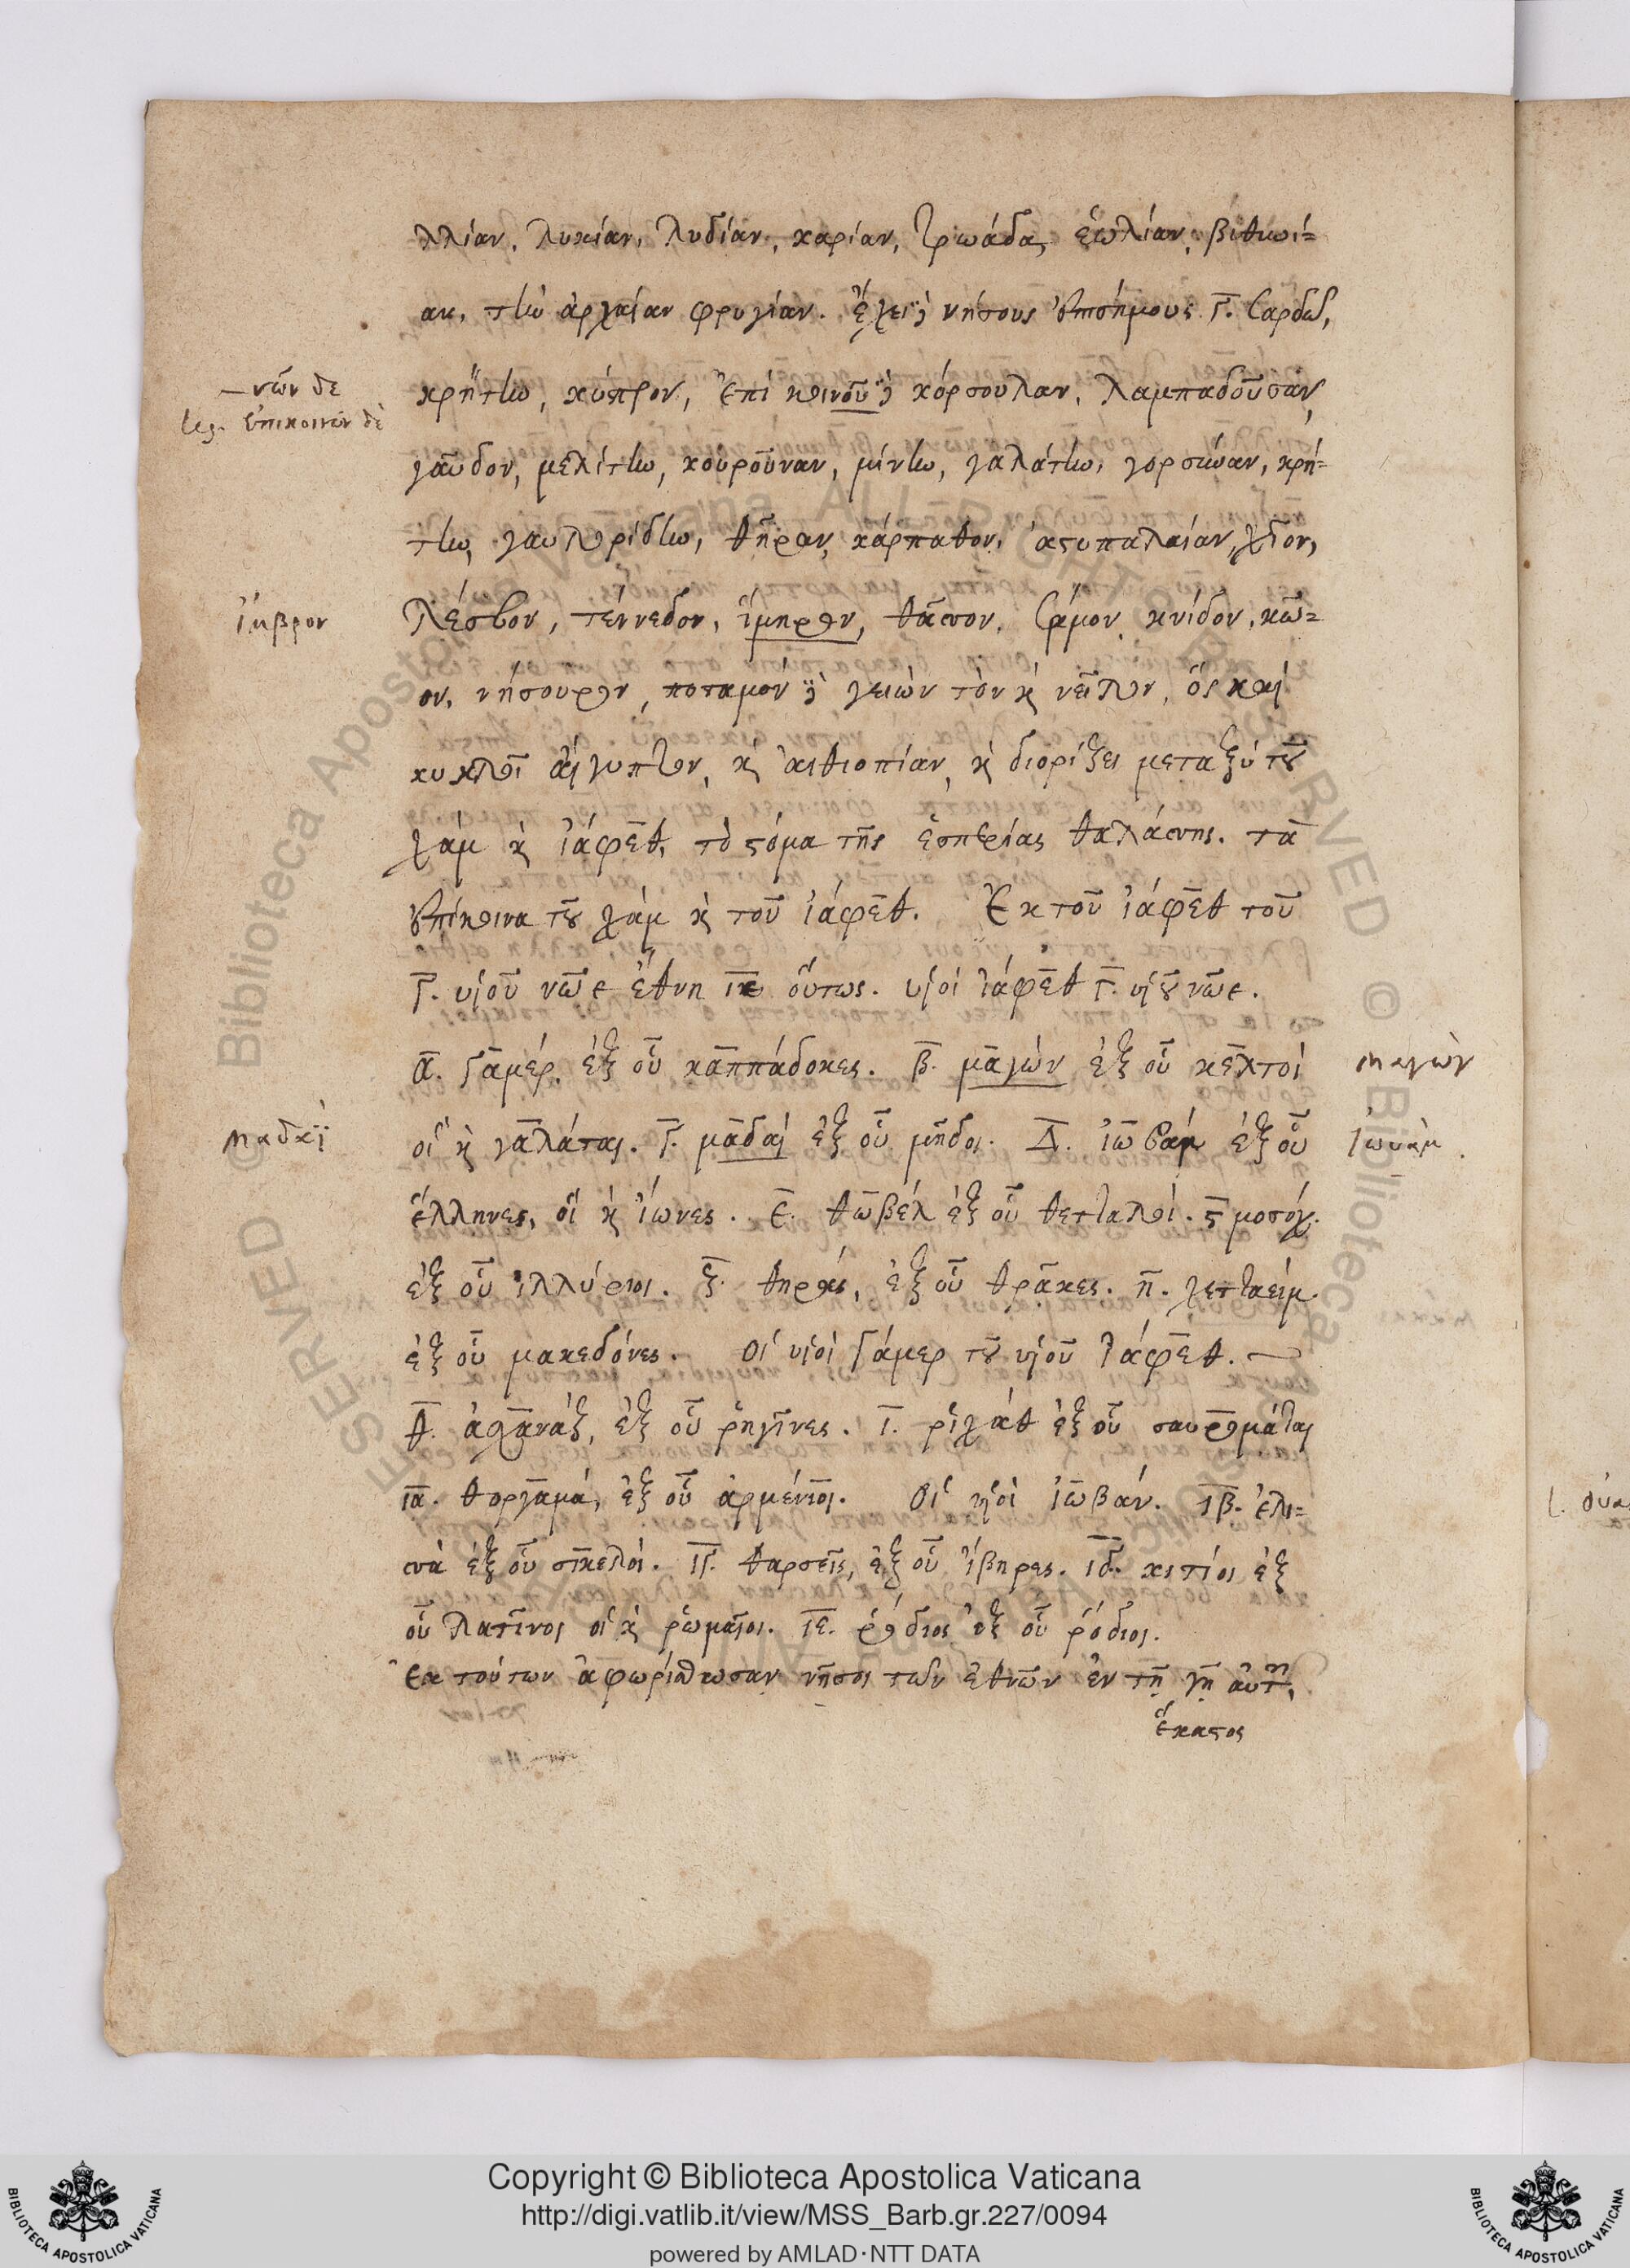 λλίαν, λυκίαν, λυδίαν, καρίαν, τρωάδα, ἐωλίαν, βιθυνί=
αν, τὴν ἀρχαίαν φρυγίαν. ἔχει δὲ νήσους ἐπισήμους γ̄. Σαρδὼ,
κρήτην, κύπρον, ἐπὶ κοινοῦ δὲ κόρσουλαν, λαμπαδοῦσαν,
— νῶν δε
leg. ἐπικοινῶν δὲ
γαῦδον, μελίτην, κουροῦναν, μίνην, γαλάτην, γορσύναν, κρή=
την, γαυλορίδην, θήραν, κάρπαθον, ἀστυπαλαίαν, χῖον,
λέσβον, τέννεδον, ἴμηρον, θάσσον, Σάμον, κνίδον, κῶ=
ἴμβρον
ον, νήσουρον, ποταμὸν δὲ γειὼν τὸν καὶ νεῖλον, ὃς καὶ
κυκλοῖ αἴγυπτον, καὶ αἰθιοπίαν, καὶ διορίζει μεταξὺ τοῦ
χάμ καὶ ἰάφεθ, τὸ στόμα τῆς ἑσπερίας θαλάσσης. τὰ
ἐπίκοινα τοῦ χάμ καὶ τοῦ ἰάφεθ. Ἐκ τοῦ ἰάφεθ τοῦ
γ̄. υἱοῦ νῶε ἔθνη ιε̄ οὕτως. υἱοὶ ἰάφεθ γ̄. υἱοῦ νῶε.
ᾱ. γάμέρ, ἐξ οὗ καππάδοκες. β̄. μαγὼν ἐξ οὗ κελτοὶ
μαγὼγ
οἱ καὶ γαλάται. γ̄. μαδαὶ ἐξ οὗ μῆδοι. Δ̄. ἰωβαμ ἐξ οὗ
μαδαϊ
ἰωυὰμ
ἕλληνες, οἱ καὶ ἴωνες. ε̄. θωβέλ ἐξ οὗ θετταλοί. ϛ̄ μοσόχ.
ἐξ οὗ ἰλλύριοι. ζ̄. θηράς, ἐξ οὗ θρᾶκες. η̄. χετταείμ.
ἐξ οὗ μακεδόνες. Οἱ υἱοὶ γάμερ τοῦ υἱοῦ ἰάφεθ.
θ̄. ἀχανάξ, ἐξ οὗ ῥηγῖνες. ῑ. ῥιχάθ ἐξ οὗ σαυρομάται
ιᾱ. θοργαμά, ἐξ οὗ ἀρμένιοι. Οἱ υἱοὶ ἰωβάν. ιβ̄. ἐλι=
σσὰ ἐξ οὗ σικελοί. ιγ̄. θαρσεῖς, ἐξ οὗ ἴβηρες. ιδ̄. κιτίοι ἐξ
οὗ λατῖνοι οἱ καὶ ῥωμαῖοι. ιε̄. ῥόδιοι ἐξ οὗ ῥόδιοι.
ἐκ τούτων ἀφωρίσθωσαν νῆσοι τῶν ἐθνῶν ἐν τῇ γῇ αὐτῇ,
ἕκαστος
Copyright © Biblioteca Apostolica Vaticana
http://digi.vatlib.it/view/MSS_Barb.gr.227/0094
powered by AMLAD·NTT DATA
BIBLIOTECA APOSTOLICA VATICANA
BIBLIOTECA APOSTOLICA VATICANA